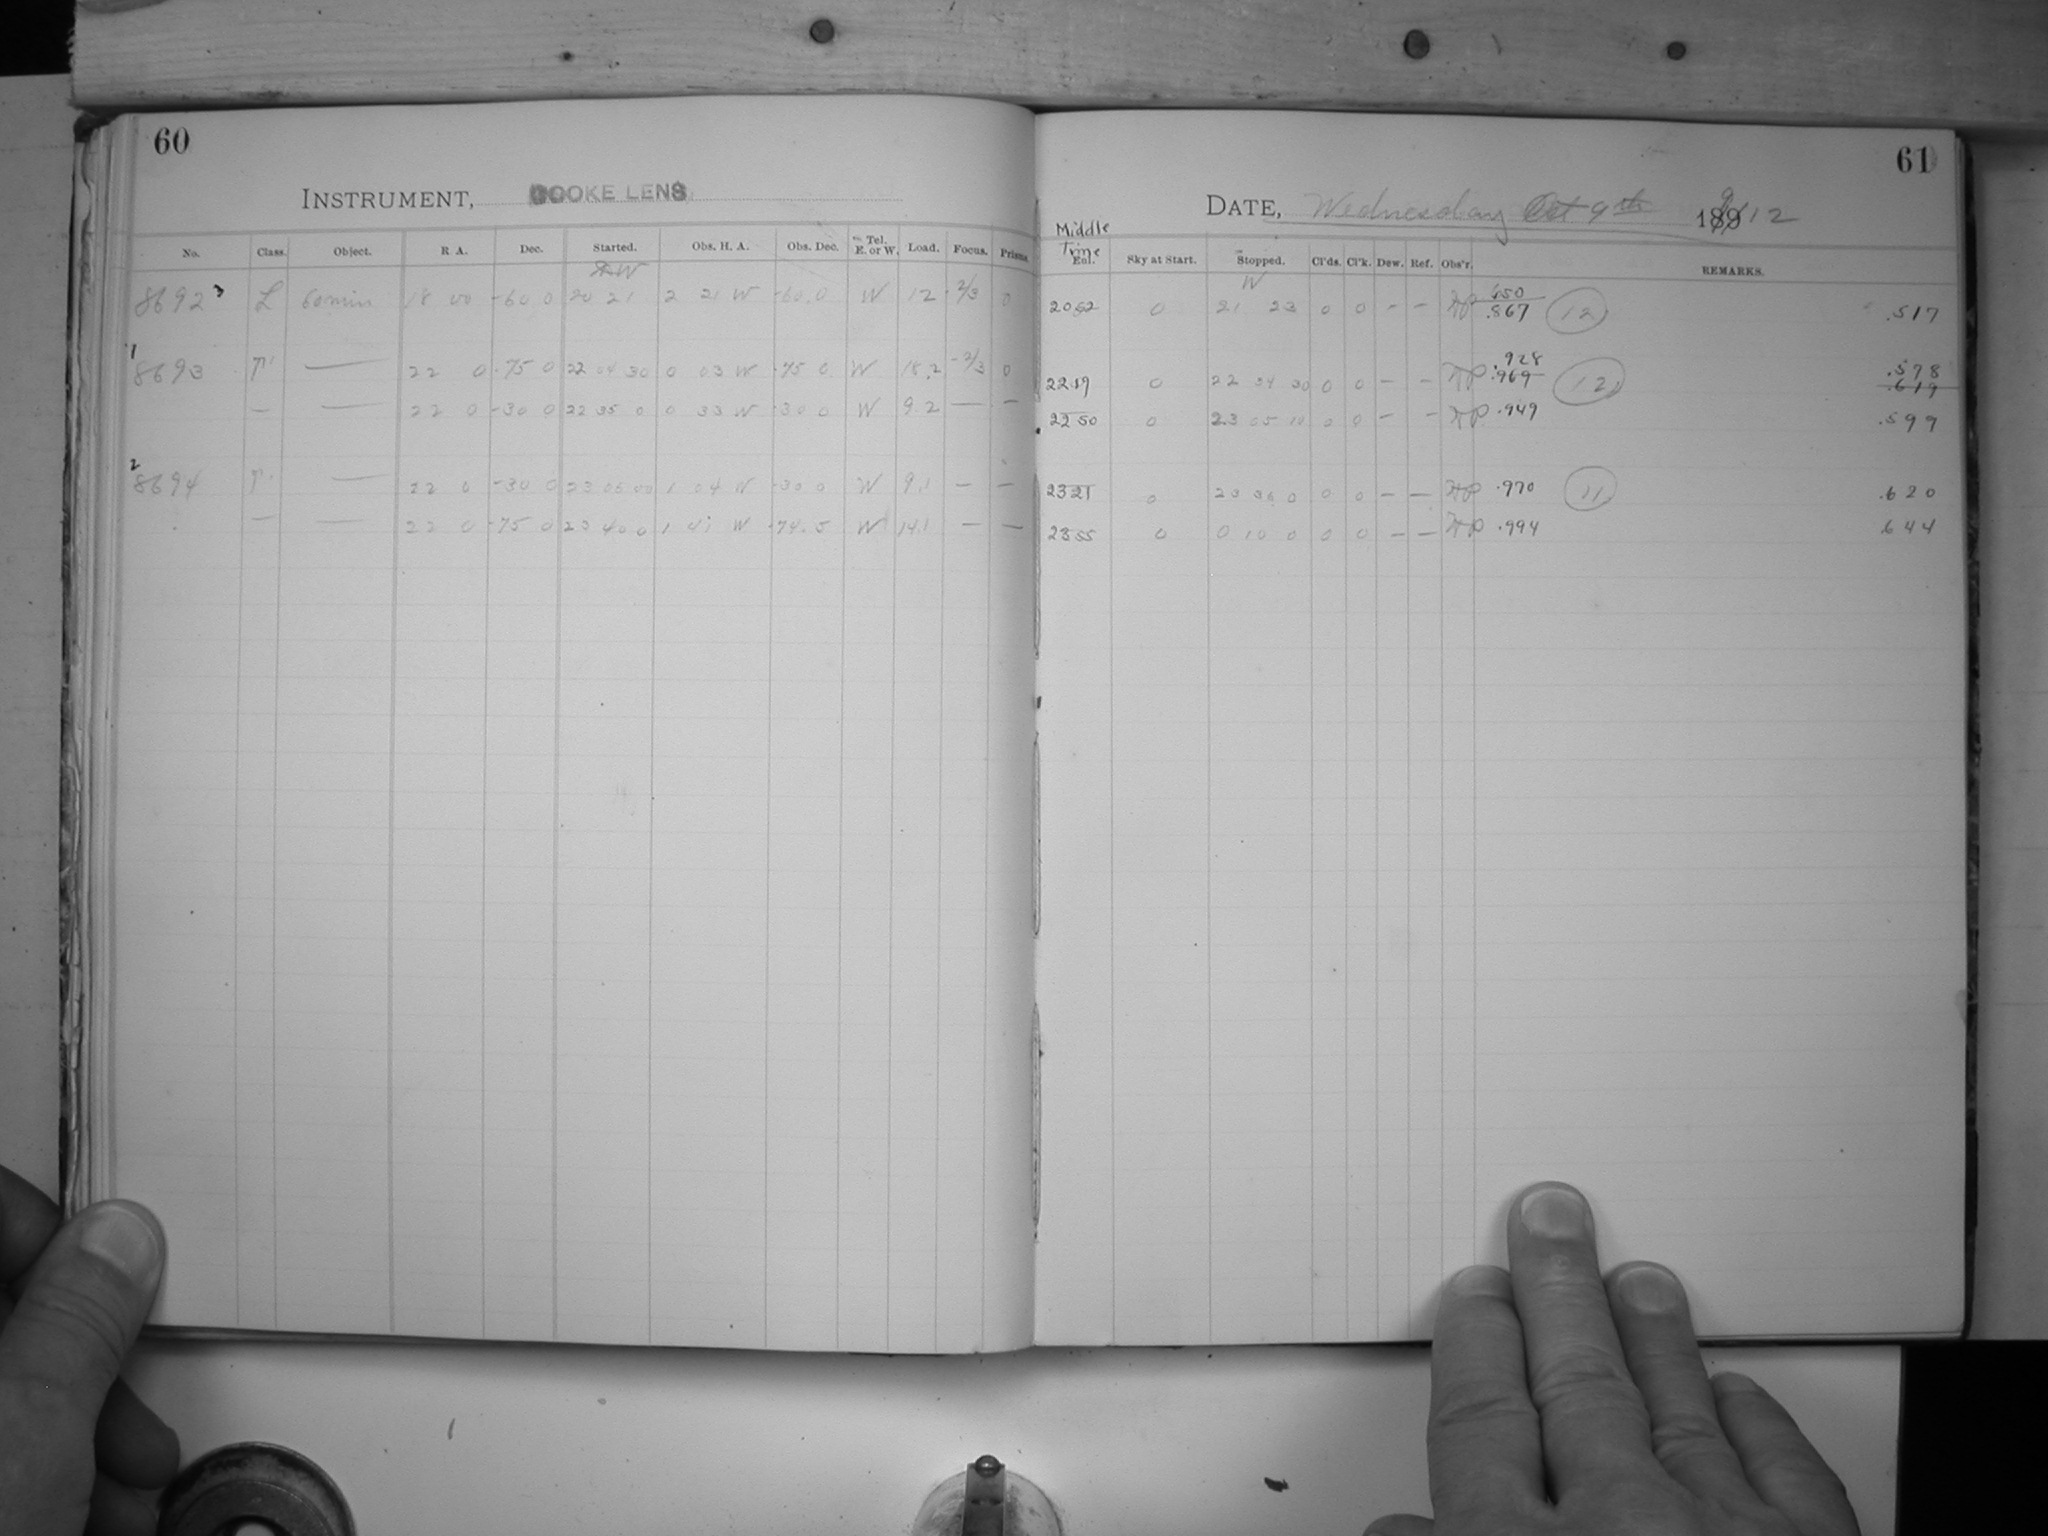 60
INSTRUMENT, COOKE LENS
No. Class. Object. R A. Dec. Started. Obs. H. A. Obs. Dec. Tel. E. or W. Load. Focus. Prisms.
W
8692 3 L 60 min 18 00 -60 0 20 21 2 21 W -60.0 W 12 -2/3 0
1
8693 —— 22 0 -75 0 22 04 30 0 03 W -75 0 W 18.2 -2/3 0
— —— 22 0 -30 0 22 35 0 0 33 W -30 0 W 9.2 — —
2
8694 —— 22 0 -30 0 23 06 00 1 04 W -30 0 W 9.1 — —
— —— 22 0 -75 0 23 40 0 1 41 W -74.5 W 14.1 — —
61
DATE, Wednesday Oct 9th 1912
Middle
Time
Enl. Sky at Start. Stopped. Cl'ds. Cl'k. Dew. Ref. Obs'r. REMARKS.
W
2052 0 21 23 0 0 – – .650 .867 12 .517
.928 .578
2219 0 22 34 30 0 0 – – .969 12 .619
2250 0 23 05 10 0 0 – – .949 .599
2321 0 23 36 0 0 0 – – .970 11 .620
2355 0 0 10 0 0 0 – – .994 .644